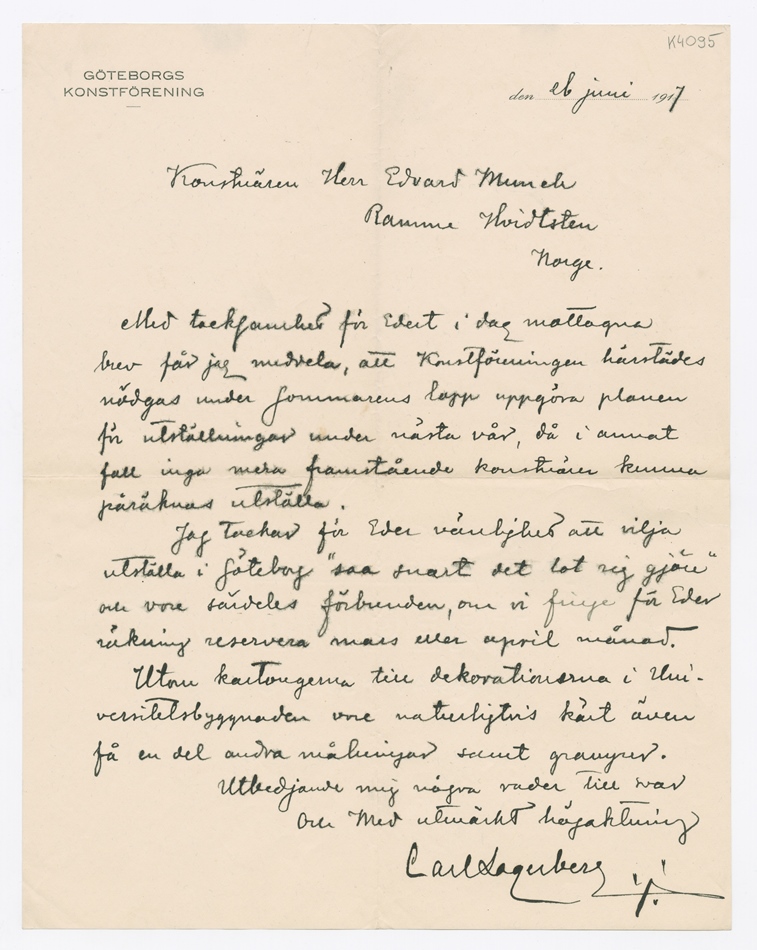 K4095
GÖTEBORGS
KONSTFÖRENING
den 26 juni 1917
Konstnären Herr Edvard Munch
Ramme Hvidtsten
Norge.
Med tacksamhet för Edert i dag mottagna
brev får jag meddela, att Konstföreningen härstädes
nödgas under sommarens lopp uppgöra planen
för utställningar under nästa vår, då i annat
fall inga mera framstående konstnärer kunna
påräknas utställa.
Jag tackar för Eder vänlighet att vilja
utställa i Göteborg "saa snart det lot sig gjöre"
och vore särdeles förbunden, om vi finge för Eder
räkning reservera mars eller april månad.
Utom kartongerna till dekorationerna i Uni-
versitetsbyggnaden vore naturligtvis kärt även
få en del andra målningar samt gravyrer.
Utbedjande mig några rader till svar
och Med utmärkt högaktning
Carl Lagerberg